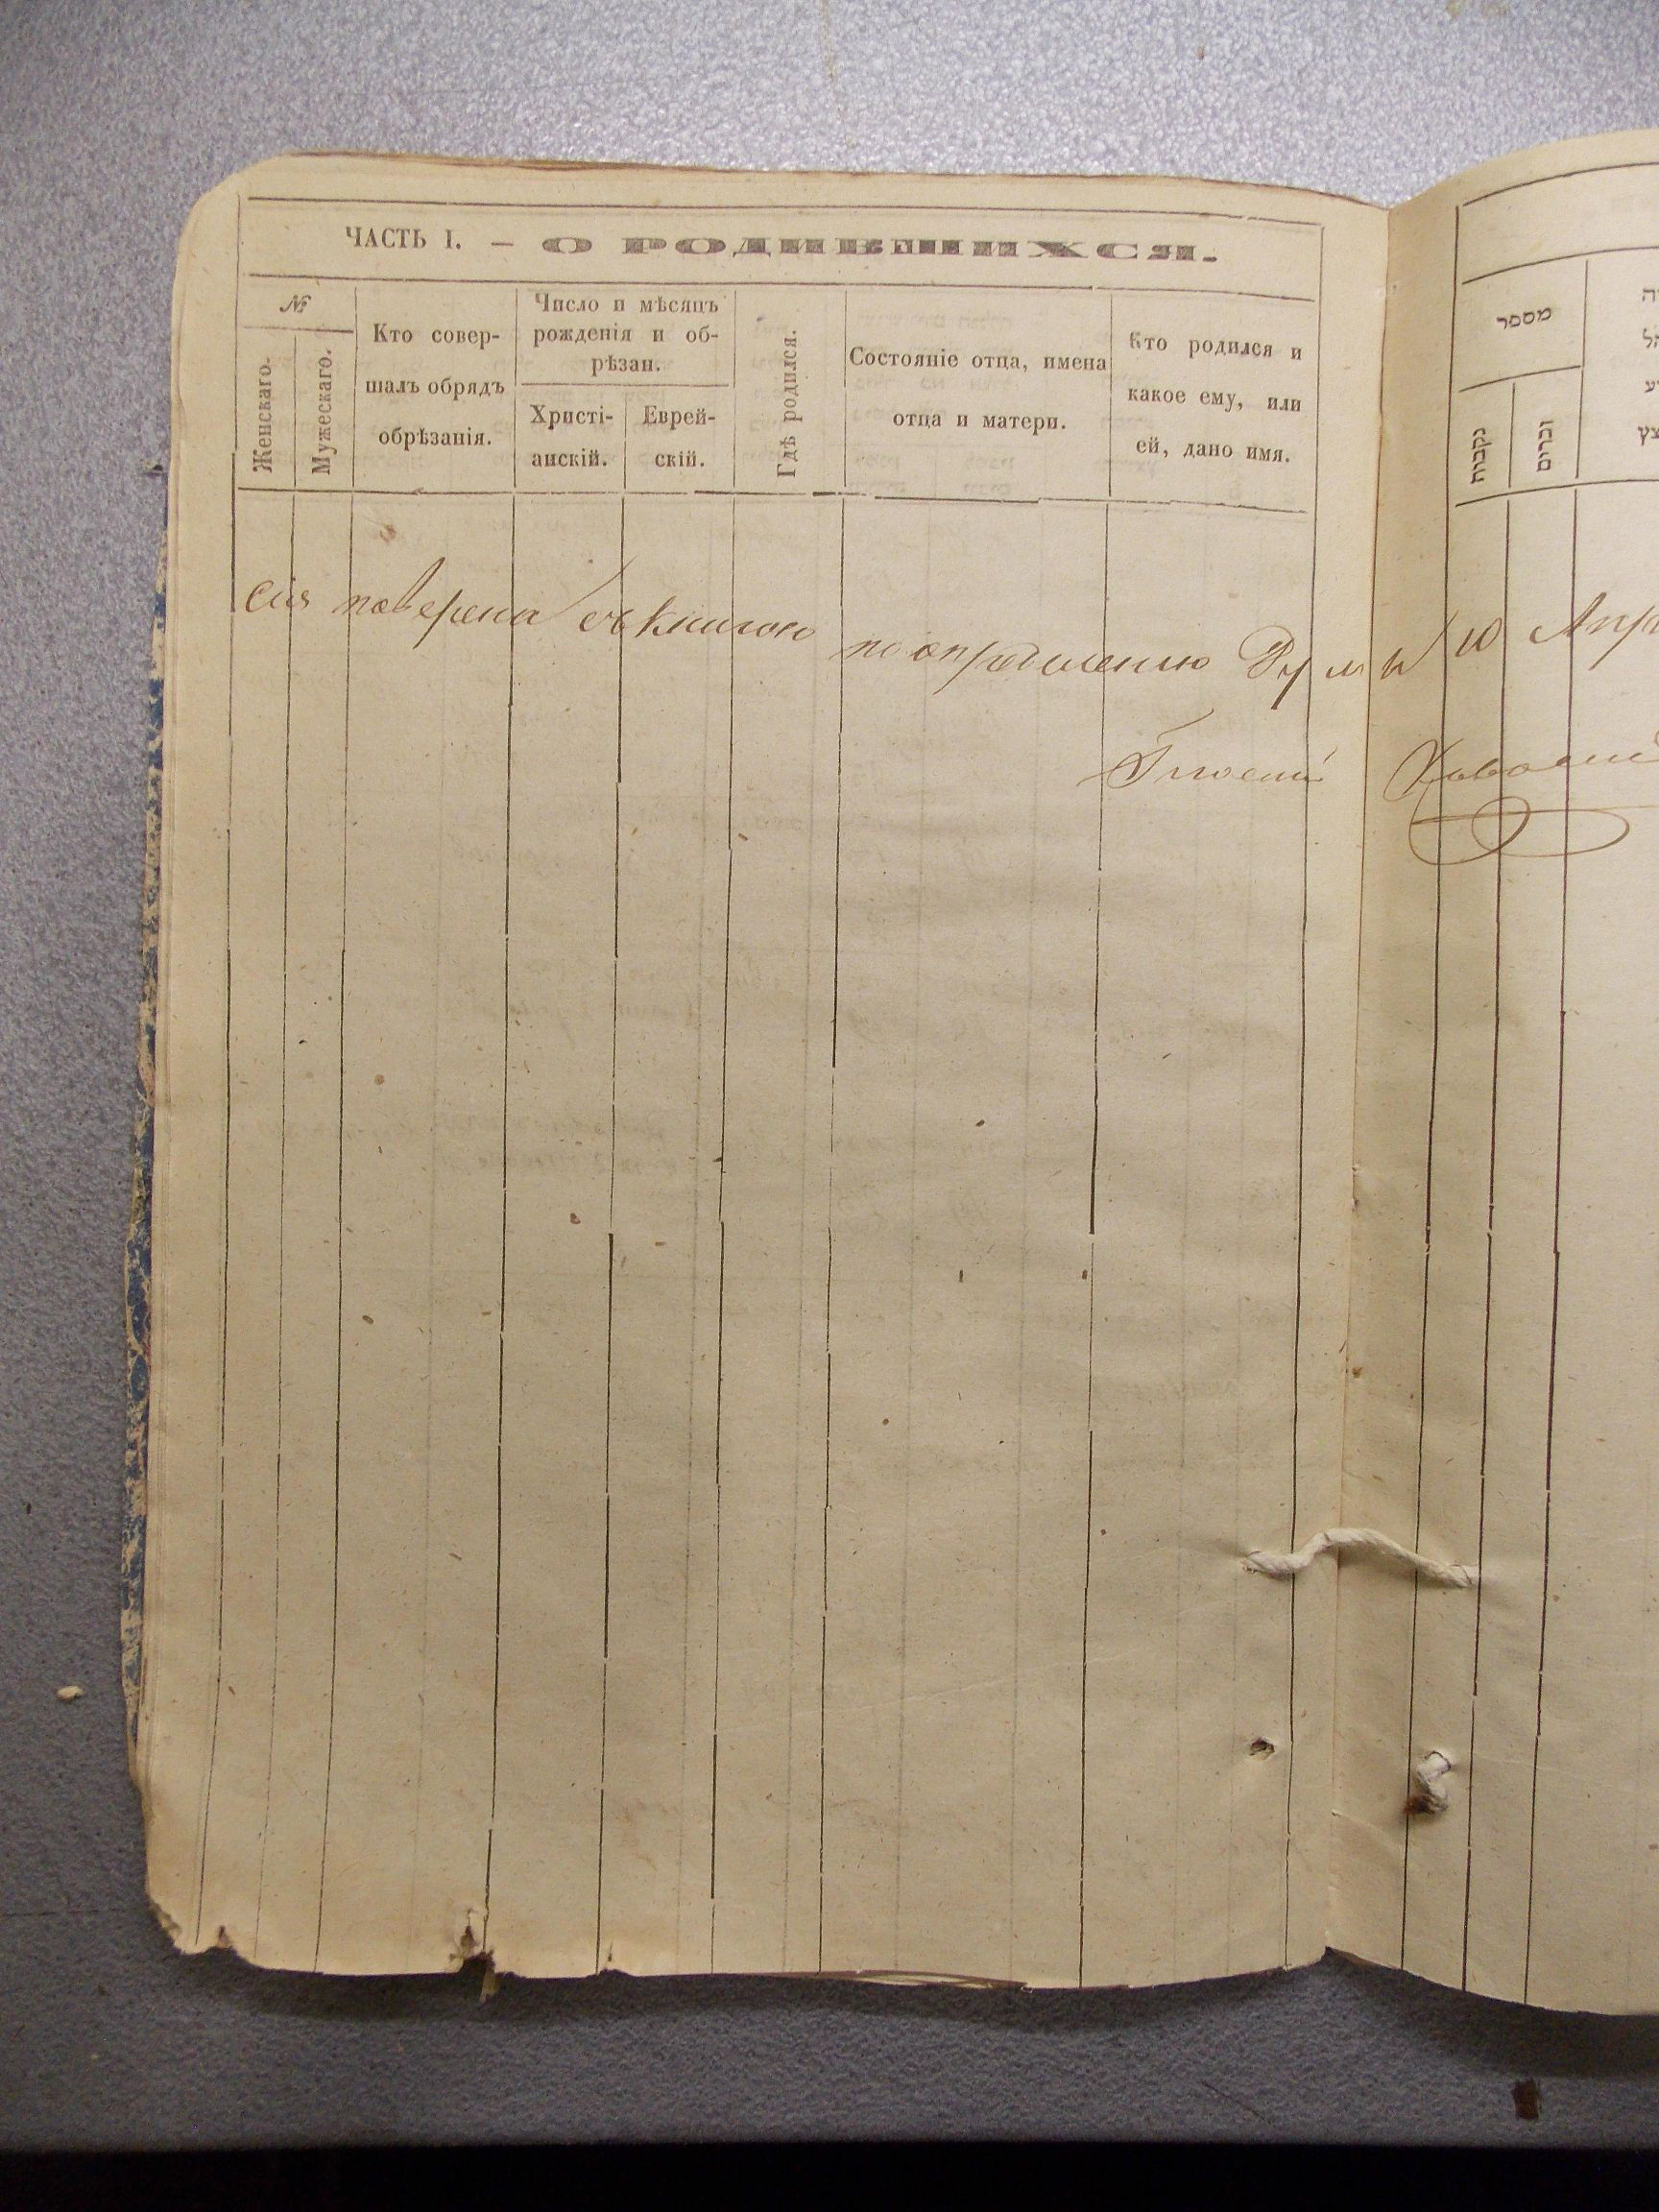 ЧАСТЬ I. — О РОДИВШИХСЯ.
№
Женскаго.
Мужескаго.
Кто совер-
шалъ обрядъ
обрѣзанія.
Число и мѣсяцъ
рожденія и об-
рѣзан.
Христі-
анскій.
Еврей-
скій.
Гдѣ родился.
Состояніе отца, имена
отца и матери.
Кто родился и
какое ему, или
ей, дано имя.
מספר
נקבות
זכרים
сія поверена съ книгою по опредѣленію Думы 10 Апр